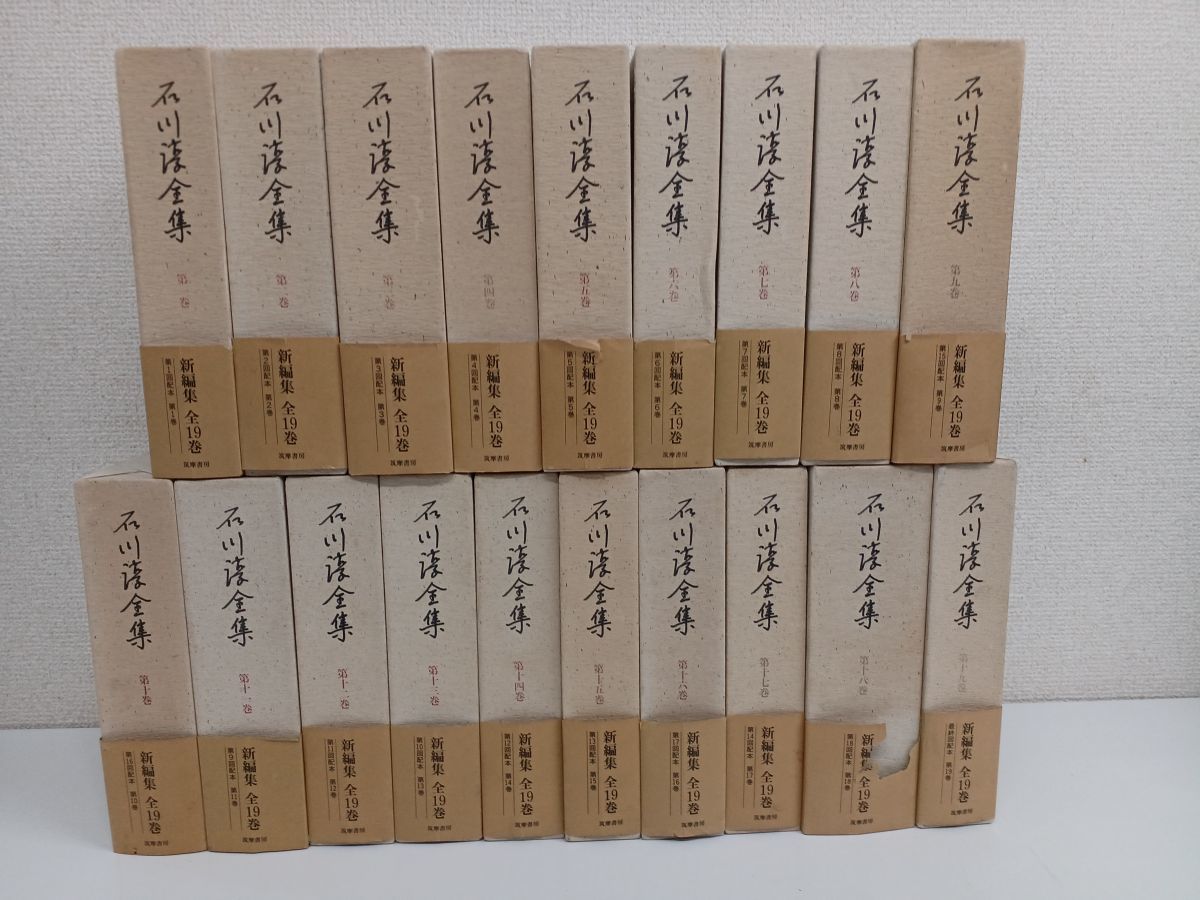 石川淳全集
第一巻
新編集 全19巻
第1回配本 第1巻
筑摩書房
石川淳全集
第二巻
新編集 全19巻
第2回配本 第2巻
筑摩書房
石川淳全集
第三巻
新編集 全19巻
第3回配本 第3巻
筑摩書房
石川淳全集
第四巻
新編集 全19巻
第4回配本 第4巻
筑摩書房
石川淳全集
第五巻
新編集 全19巻
第5回配本 第5巻
筑摩書房
石川淳全集
第六巻
新編集 全19巻
第6回配本 第6巻
筑摩書房
石川淳全集
第七巻
新編集 全19巻
第7回配本 第7巻
筑摩書房
石川淳全集
第八巻
新編集 全19巻
第8回配本 第8巻
筑摩書房
石川淳全集
第九巻
新編集 全19巻
第15回配本 第9巻
筑摩書房
石川淳全集
第十巻
新編集 全19巻
第16回配本 第10巻
筑摩書房
石川淳全集
第十一巻
新編集 全19巻
第9回配本 第11巻
筑摩書房
石川淳全集
第十二巻
新編集 全19巻
第11回配本 第12巻
筑摩書房
石川淳全集
第十三巻
新編集 全19巻
第10回配本 第13巻
筑摩書房
石川淳全集
第十四巻
新編集 全19巻
第12回配本 第14巻
筑摩書房
石川淳全集
第十五巻
新編集 全19巻
第13回配本 第15巻
筑摩書房
石川淳全集
第十六巻
新編集 全19巻
第17回配本 第16巻
筑摩書房
石川淳全集
第十七巻
新編集 全19巻
第14回配本 第17巻
筑摩書房
石川淳全集
第十八巻
新編集 全19巻
第18回配本 第18巻
筑摩書房
石川淳全集
第十九巻
新編集 全19巻
最終回配本 第19巻
筑摩書房